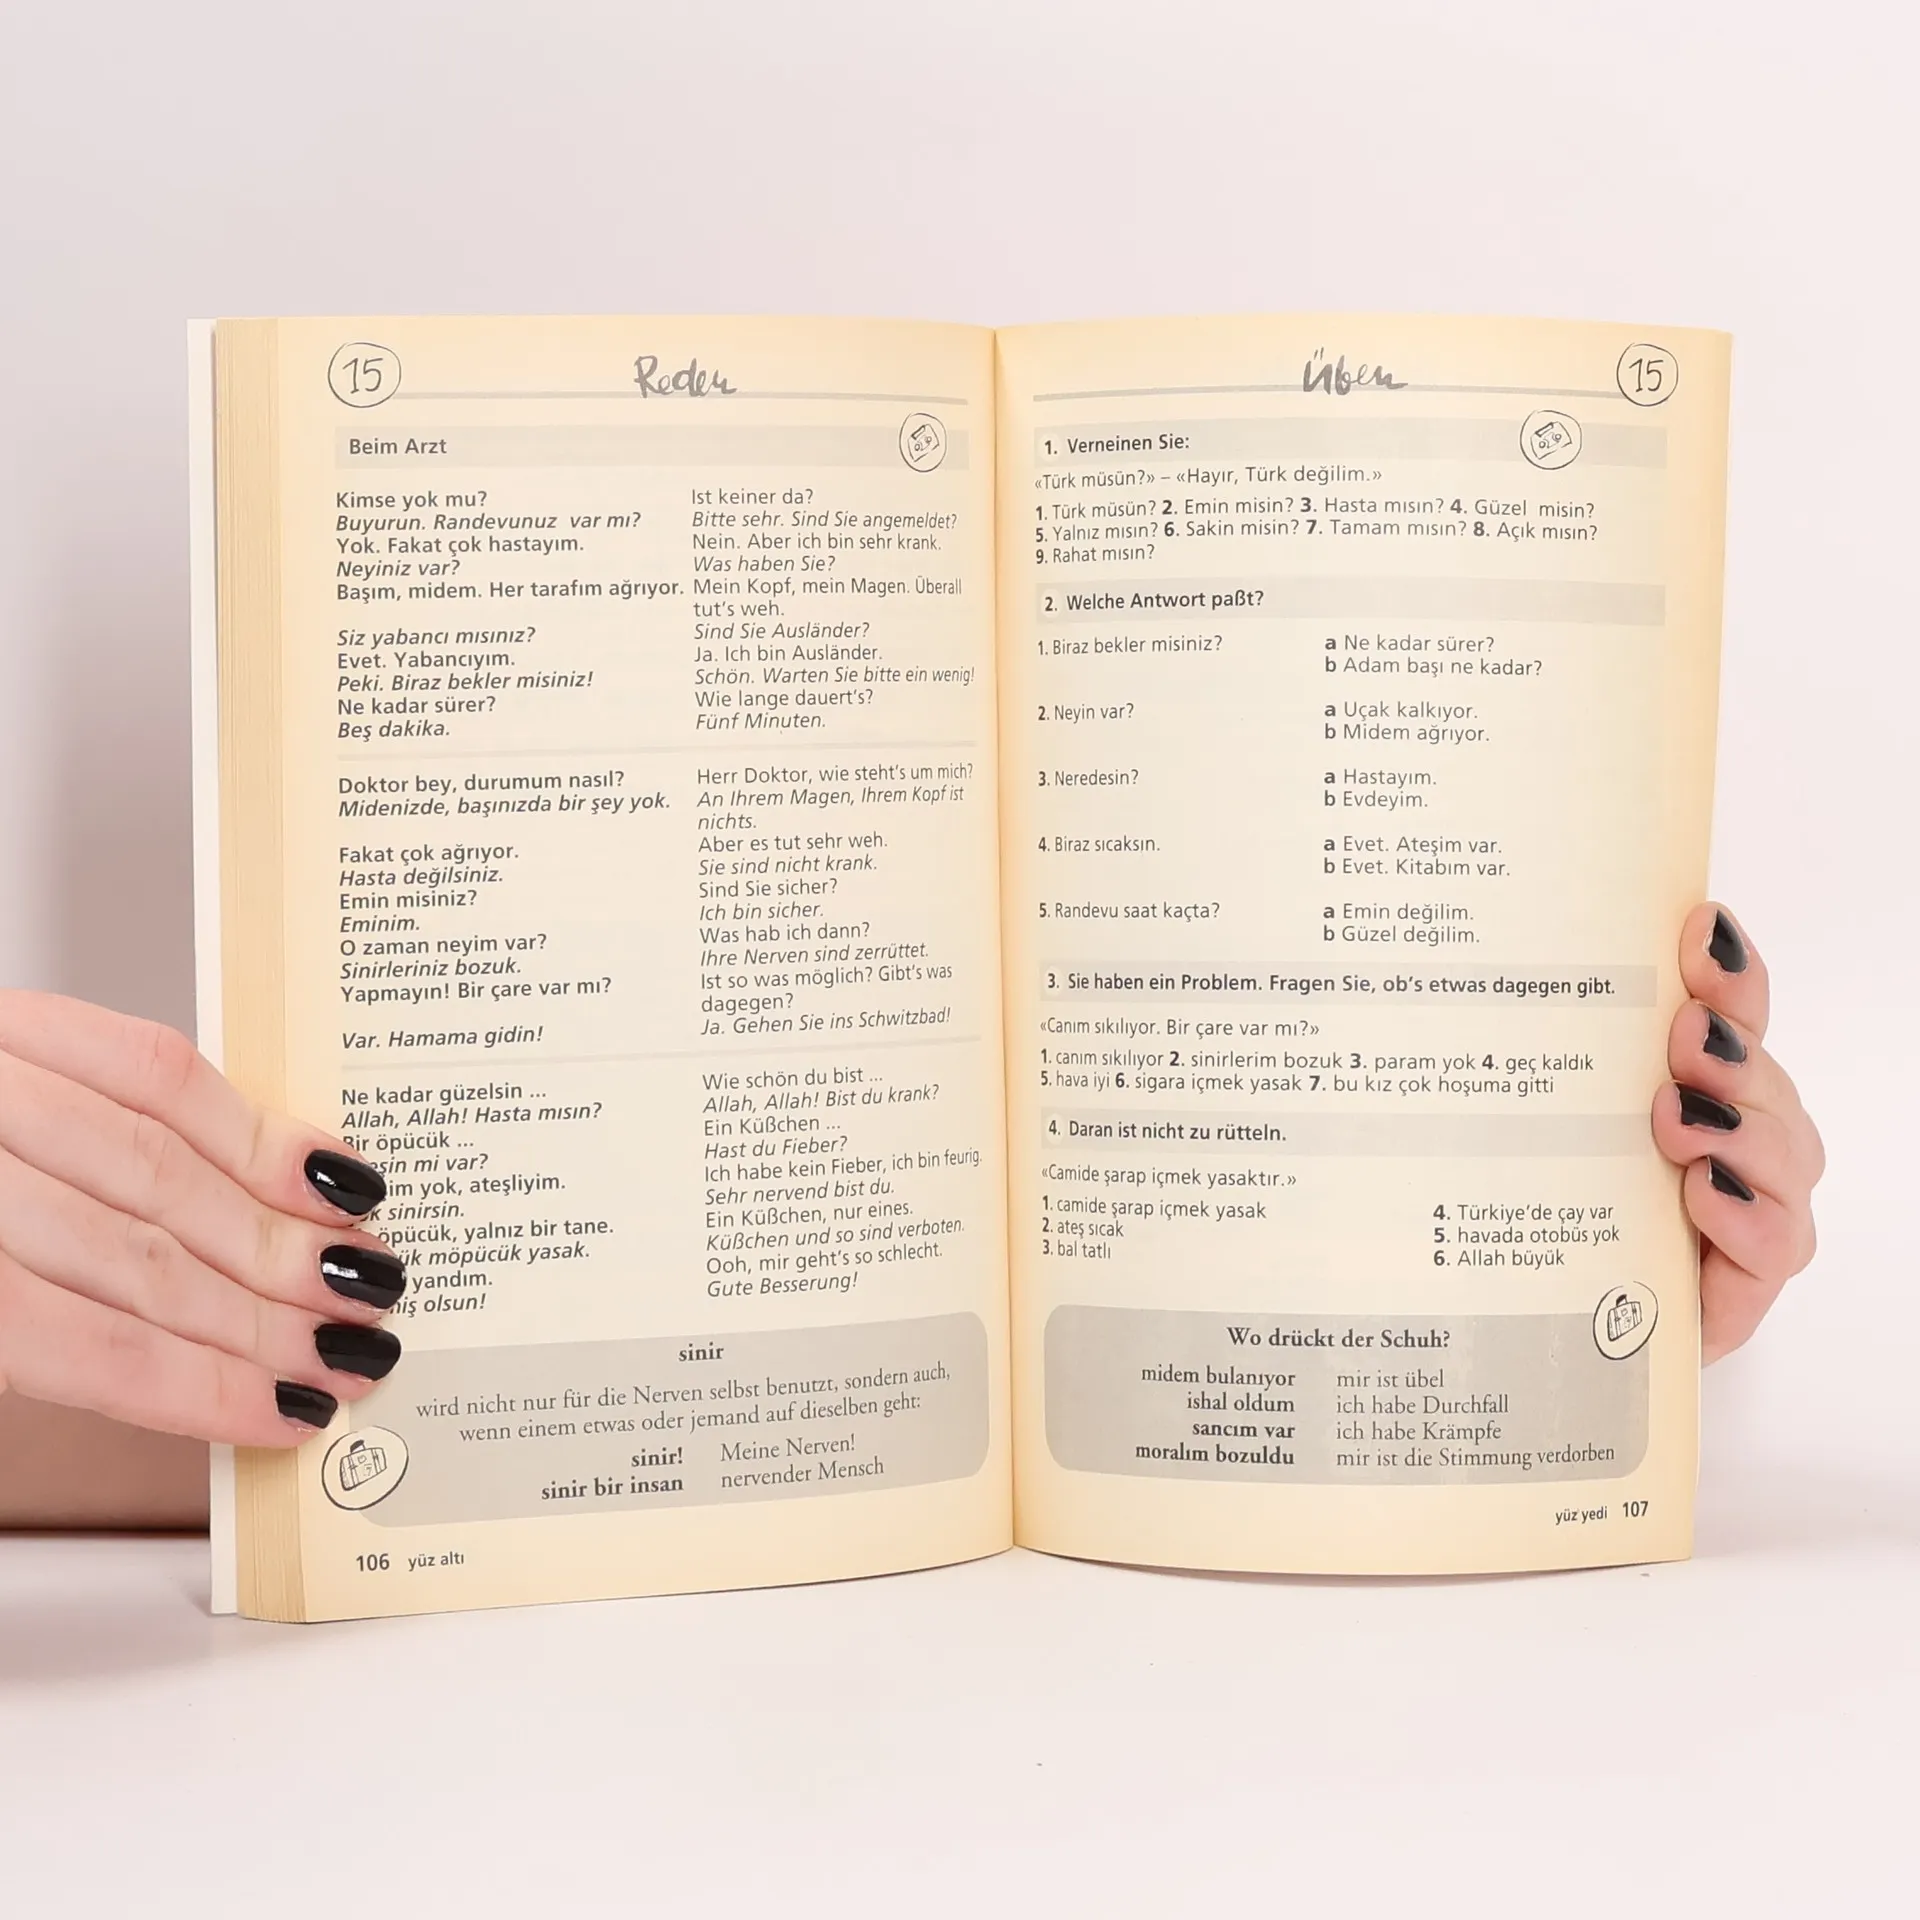 15 Reden
Beim Arzt
Kimse yok mu? Ist keiner da?
Buyurun. Randevunuz var mı? Bitte sehr. Sind Sie angemeldet?
Yok. Fakat çok hastayım. Nein. Aber ich bin sehr krank.
Neyiniz var? Was haben Sie?
Başım, midem. Her tarafım ağrıyor. Mein Kopf, mein Magen. Überall
tut's weh.
Siz yabancı mısınız? Sind Sie Ausländer?
Evet. Yabancıyım. Ja. Ich bin Ausländer.
Peki. Biraz bekler misiniz! Schön. Warten Sie bitte ein wenig!
Ne kadar sürer? Wie lange dauert's?
Beş dakika. Fünf Minuten.
Doktor bey, durumum nasıl? Herr Doktor, wie steht's um mich?
Midenizde, başınızda bir şey yok. An Ihrem Magen, Ihrem Kopf ist
nichts.
Fakat çok ağrıyor. Aber es tut sehr weh.
Hasta değilsiniz. Sie sind nicht krank.
Emin misiniz? Sind Sie sicher?
Eminim. Ich bin sicher.
O zaman neyim var? Was hab ich dann?
Sinirleriniz bozuk. Ihre Nerven sind zerrüttet.
Yapmayın! Bir çare var mı? Ist so was möglich? Gibt's was
dagegen?
Var. Hamama gidin! Ja. Gehen Sie ins Schwitzbad!
Ne kadar güzelsin ... Wie schön du bist ...
Allah, Allah! Hasta mısın? Allah, Allah! Bist du krank?
Bir öpücük ... Ein Küßchen ...
mi var? Hast du Fieber?
yok, ateşliyim. Ich habe kein Fieber, ich bin feurig.
sinirsin. Sehr nervend bist du.
öpücük, yalnız bir tane. Ein Küßchen, nur eines.
möpücük yasak. Küßchen und so sind verboten.
yandım. Ooh, mir geht's so schlecht.
olsun! Gute Besserung!
sinir
wird nicht nur für die Nerven selbst benutzt, sondern auch,
wenn einem etwas oder jemand auf dieselben geht:
sinir! Meine Nerven!
sinir bir insan nervender Mensch
106 yüz altı
Üben 15
1. Verneinen Sie:
«Türk müsün?» – «Hayır, Türk değilim.»
1. Türk müsün? 2. Emin misin? 3. Hasta mısın? 4. Güzel misin?
5. Yalnız mısın? 6. Sakin misin? 7. Tamam mısın? 8. Açık mısın?
9. Rahat mısın?
2. Welche Antwort paßt?
1. Biraz bekler misiniz? a Ne kadar sürer?
b Adam başı ne kadar?
2. Neyin var? a Uçak kalkıyor.
b Midem ağrıyor.
3. Neredesin? a Hastayım.
b Evdeyim.
4. Biraz sıcaksın. a Evet. Ateşim var.
b Evet. Kitabım var.
5. Randevu saat kaçta? a Emin değilim.
b Güzel değilim.
3. Sie haben ein Problem. Fragen Sie, ob's etwas dagegen gibt.
«Canım sıkılıyor. Bir çare var mı?»
1. canım sıkılıyor 2. sinirlerim bozuk 3. param yok 4. geç kaldık
5. hava iyi 6. sigara içmek yasak 7. bu kız çok hoşuma gitti
4. Daran ist nicht zu rütteln.
«Camide şarap içmek yasaktır.»
1. camide şarap içmek yasak 4. Türkiye'de çay var
2. ateş sıcak 5. havada otobüs yok
3. bal tatlı 6. Allah büyük
Wo drückt der Schuh?
midem bulanıyor mir ist übel
ishal oldum ich habe Durchfall
sancım var ich habe Krämpfe
moralım bozuldu mir ist die Stimmung verdorben
yüz yedi 107